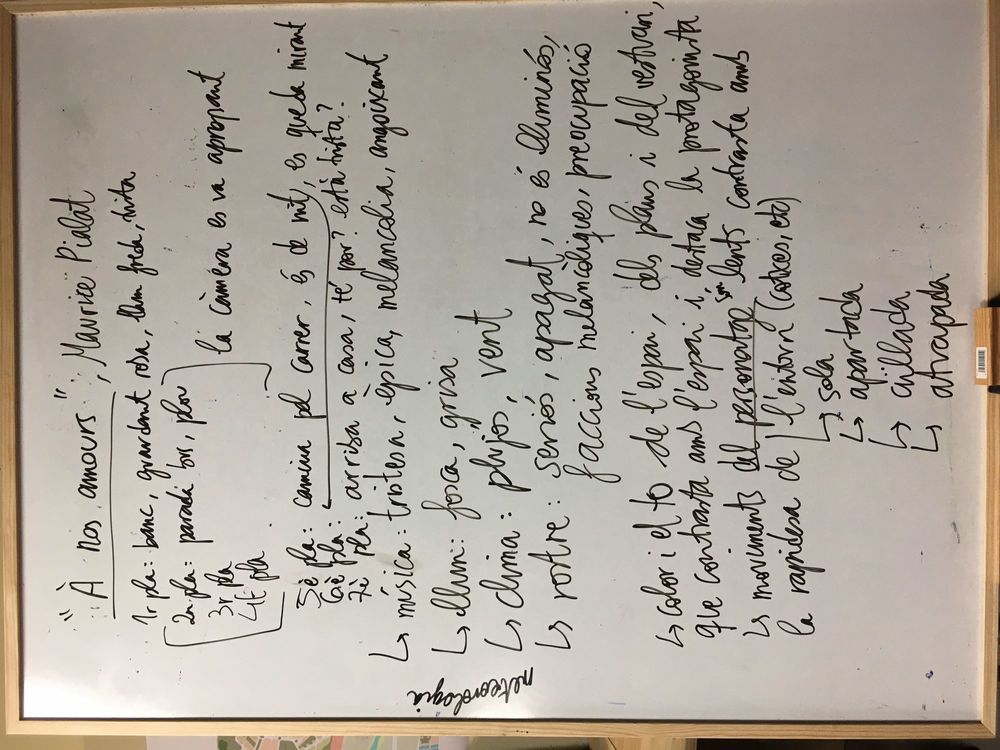 "À nos amours", Maurice Pialat
1r pla: banc, guardant roba, llum freda, trista
2n pla: parada bus, plou
3r pla
4t pla
la càmera es va apropant
5è pla: camina pel carrer, és de nit, es queda mirant
6è pla:
7è pla: arriba a casa, té por? està trista?
↳ música: tristesa, èpica, melancolia, angoixant
↳ llum: fosca, grisa
↳ clima: plujós, vent
meteorologia
↳ rostre: seriós, apagat, no és lluminós,
faccions melancòliques, preocupació
↳ color i el to de l'espai, dels plans i del vestuari,
que contrasta amb l'espai i destaca la protagonista
↳ moviments del personatge són lents contrasta amb
la rapidesa de l'entorn (cotxes, etc)
↳ sola
↳ apartada
↳ aïllada
↳ atrapada